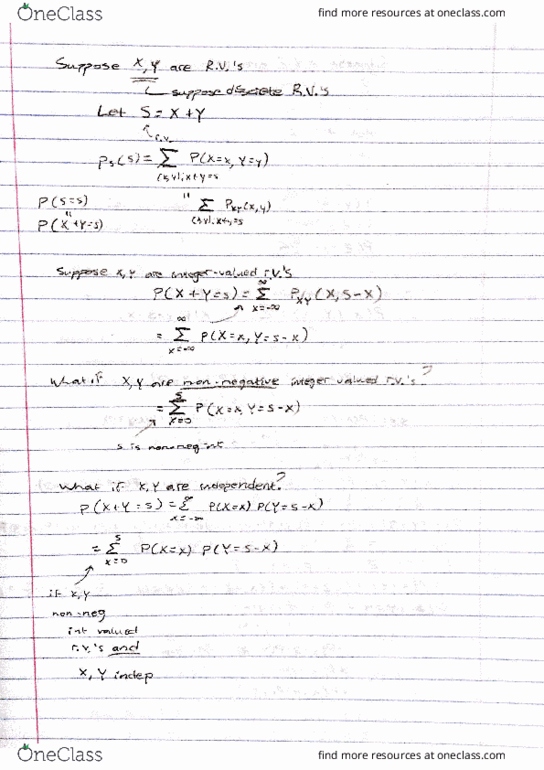 OneClass
find more resources at oneclass.com
Suppose X,Y are R.V.'s
suppose discrete R.V.'s
Let S = X + Y
r.v.
p_S(s) = ∑ P(X=x, Y=y)
(x,y): x+y=s
P(S=s)
"
P(X+Y=s)
" ∑ P_XY(x,y)
(x,y): x+y=s
Suppose X,Y are integer-valued r.v.'s
P(X+Y=s) = ∑ P_XY(x, s-x)
∞
x=-∞
∞
= ∑ P(X=x, Y=s-x)
x=-∞
What if X,Y are non-negative integer valued r.v.'s?
s
= ∑ P(X=x, Y=s-x)
x=0
s is nonneg int.
What if X,Y are independent?
P(X+Y=s) = ∑ P(X=x) P(Y=s-x)
∞
x=-∞
s
= ∑ P(X=x) P(Y=s-x)
x=0
if X,Y
non-neg
int valued
r.v.'s and
X,Y indep
OneClass
find more resources at oneclass.com